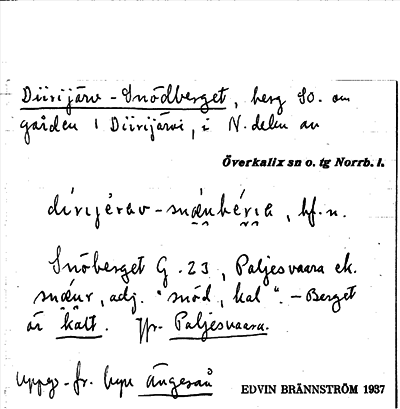 Diirijärv - Snödberget, berg SO. om
gården 1 Diirijärvi, i N. delen av
Överkalix sn o. tg Norrb. l.
bf. n.
Snöberget G. 23, Paljesvaara ek.
adj. "snöd, kal". - Berget
är kalt. Jfr. Paljesvaara.
Uppg. fr. byn Ängeså
EDVIN BRÄNNSTRÖM 1937